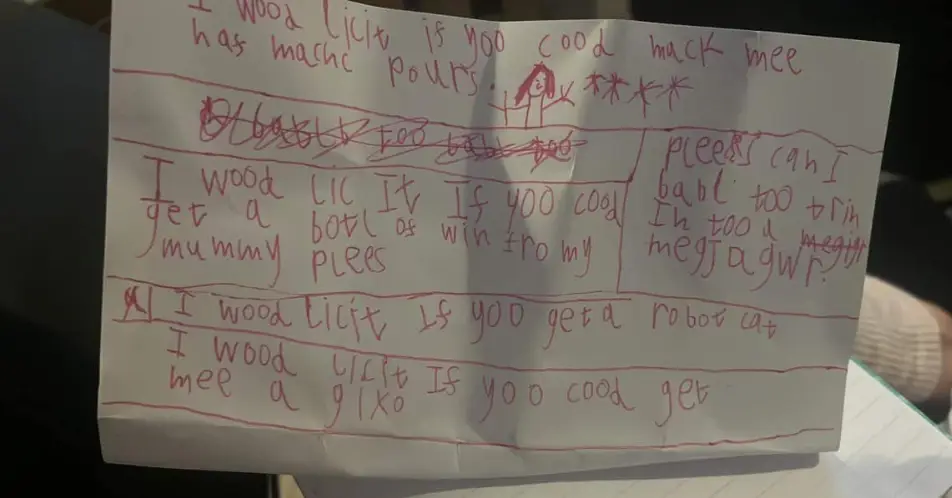 I wood licit is yoo cood mack mee
has machc pours.
pleess can I
babl too trin
In too a
megjagwr.
I wood lic It If yoo cood
get a botl of win fro my
mummy plees
I wood licit If yoo get a robot cat
I wood licit If yoo cood get
mee a gixo